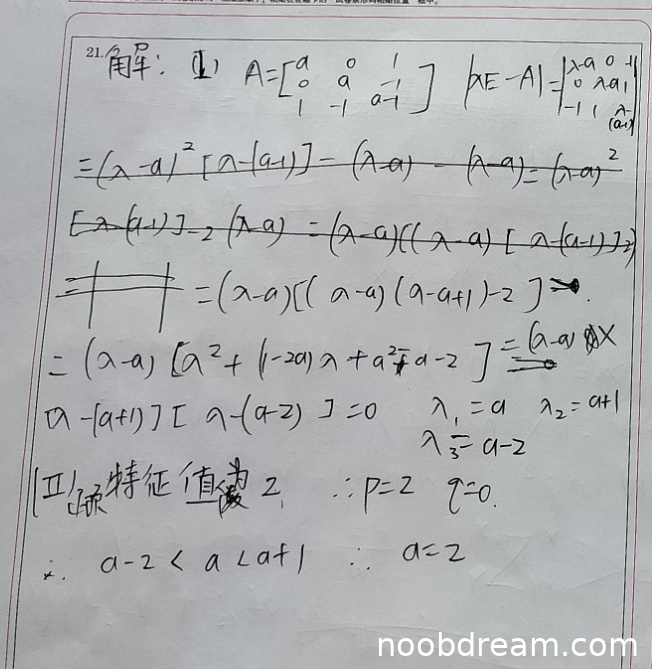 21. 解: (I) A=[a 0 1 |λE-A|=|λ-a 0 -1
0 a -1 0 λ-a 1
1 -1 a-1] -1 1 λ-(a-1)|
=(λ-a)²[λ-(a-1)]-(λ-a)-(λ-a)=(λ-a)²
[λ-(a-1)]-2(λ-a)=(λ-a)[(λ-a)[λ-(a-1)]-2]
=(λ-a)[(λ-a)(λ-a+1)-2]
=(λ-a)[λ²+(1-2a)λ+a²-a-2]=(λ-a)x
[λ-(a+1)][λ-(a-2)]=0 λ₁=a λ₂=a+1
λ₃=a-2
(II) 特征值为2, ∴p=2 q=0.
∴ a-2<a<a+1 ∴ a=2
noobdream.com